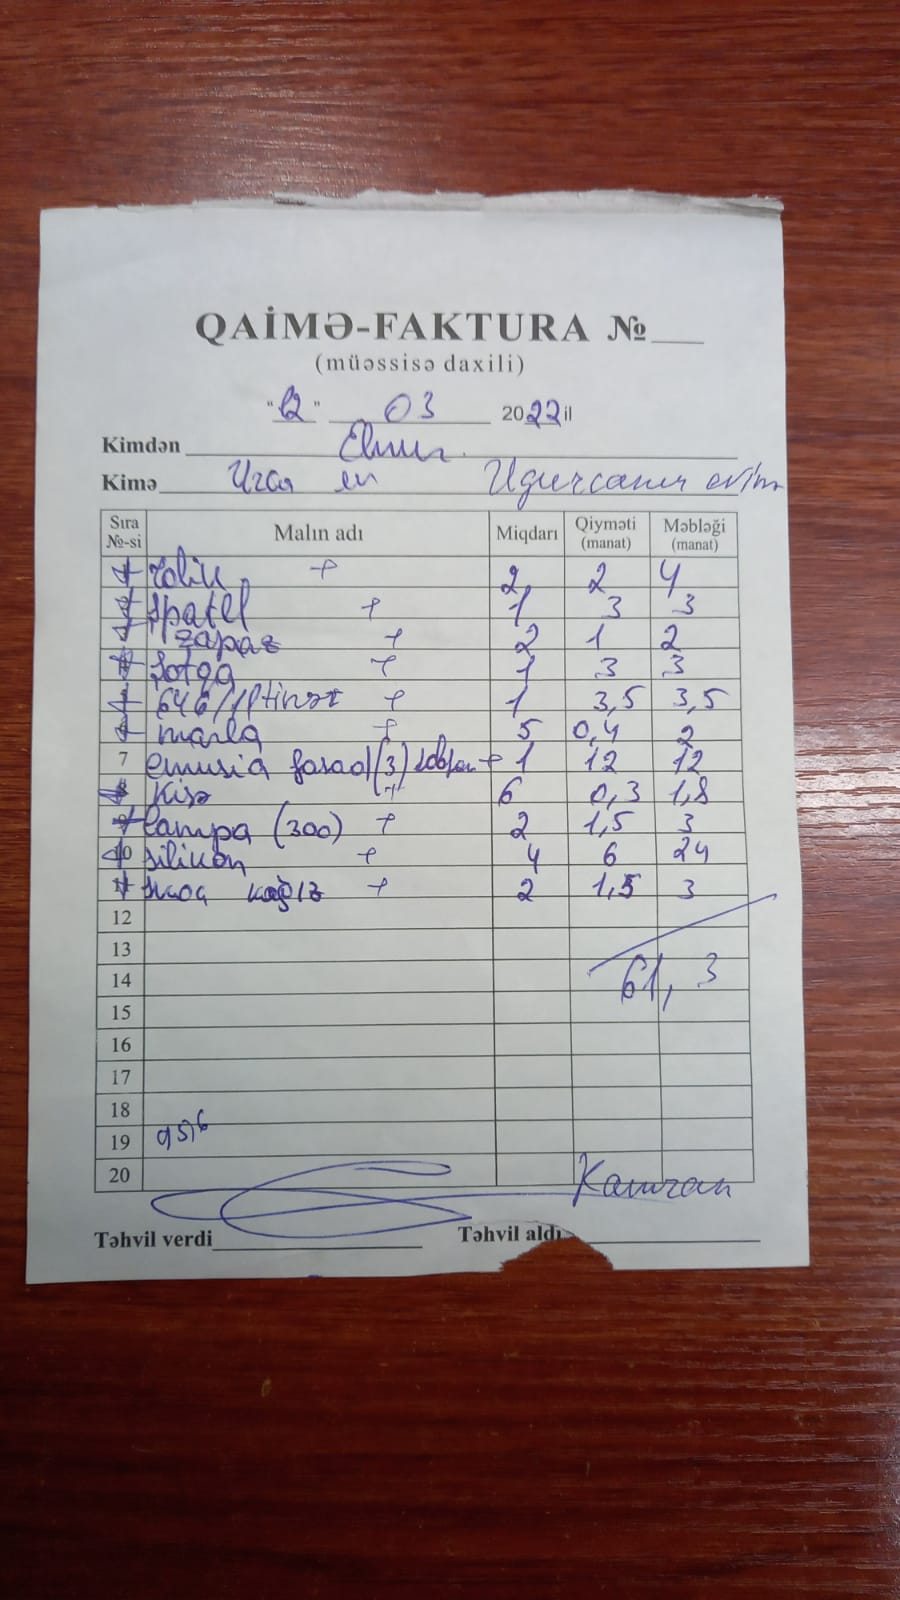 QAİMƏ-FAKTURA №
(müəssisə daxili)
"12" 03 2022 il
Kimdən Elnur
Kimə Uğurcanın evinə
Sıra №-si Malın adı Miqdarı Qiyməti (manat) Məbləği (manat)
rolik + 2 2 4
spatel + 1 3 3
zapas + 2 1 2
+ 1 3 3
646/1 + 1 3,5 3,5
marla + 5 0,4 2
7 emusia fasad (3) + 1 12 12
Kisə + 6 0,3 1,8
lampa (300) + 2 1,5 3
10 silikon + 4 6 24
kağız + 2 1,5 3
12
13
14 61,3
15
16
17
18
19 95,6
20
Kamran
Təhvil verdi Təhvil aldı